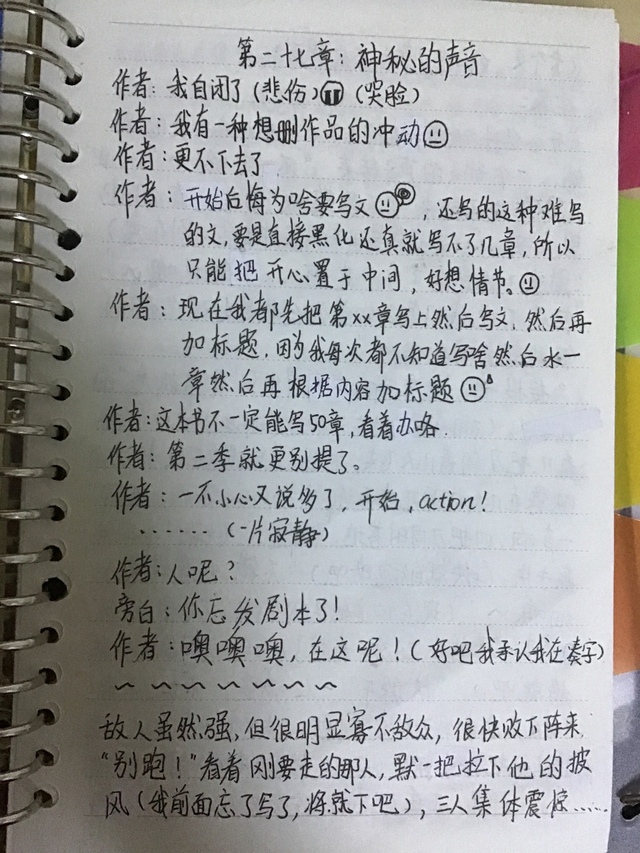 第二十七章：神秘的声音
作者：我自闭了（悲伤）（哭脸）
作者：我有一种想删作品的冲动
作者：更不下去了
作者：开始后悔为啥要写文，还写的这种难写
的文，要是直接黑化还真就写不了几章，所以
只能把开心置于中间，好想情节。
作者：现在我都先把第xx章写上然后写文，然后再
加标题，因为我每次都不知道写啥然后水一
章然后再根据内容加标题
作者：这本书不一定能写50章，看着办咯.
作者：第二季就更别提了。
作者：一不小心又说多了，开始，action！
······（一片寂静）
作者：人呢？
旁白：你忘发剧本了！
作者：噢噢噢，在这呢！（好吧我承认我在凑字）
~~~~~~~
敌人虽然强，但很明显寡不敌众，很快败下阵来.
“别跑！”看着刚要走的那人，默一把拉下他的披
风（我前面忘了写了，将就下吧），三人集体震惊……